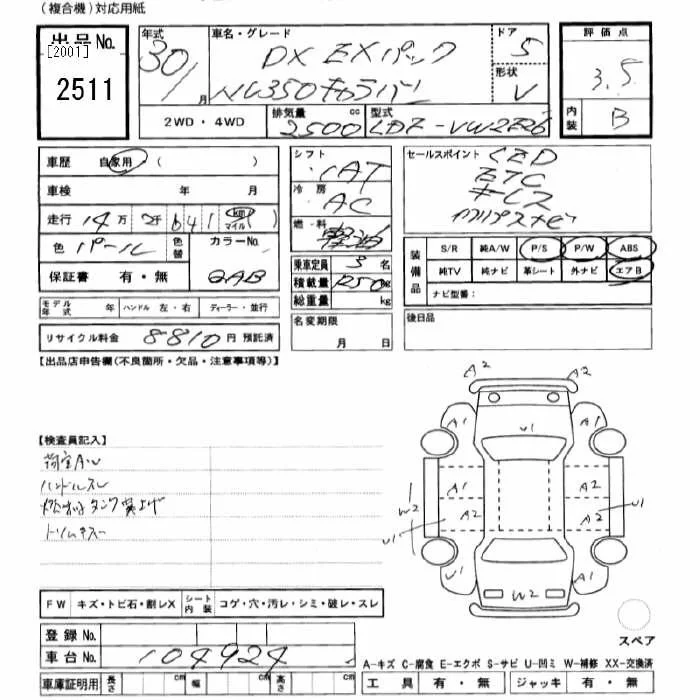 (複合機)対応用紙
出品No. [2001] 2511
年式 30/ 月
車名・グレード DX EXパック
NV350キャラバン
ドア 5
形状 V
評価点 3.5
内装 B
2WD・4WD 排気量 2500 cc 型式 LDF-VW2E26
車歴 自家用 ( )
車検 年 月
走行 14万 2千 641 km マイル
色 パール 色替 カラーNo. QAB
保証書 有・無
シフト AT
冷房 AC
燃料 軽油
乗車定員 3 名
積載量 1250 kg
総重量 kg
セールスポイント LED
ETC
キーレス
装備品 S/R 純A/W P/S P/W ABS
純TV 純ナビ 革シート 外ナビ エアB
ナビ型番:
モデル年式 年 ハンドル 左・右 ディーラー・並行
リサイクル料金 8810 円 預託済
名変期限 月 日
後日品
【出品店申告欄(不良箇所・欠品・注意事項等)】
【検査員記入】
荷室AW
ハンドルスレ
燃料タンク突上げ
トリムキズ
A2 A2
A1 A1
A1 A2
W2 A2 A2 U1
U1
U1 A1
W2
スペア
FW キズ・トビ石・割レX シート内装 コゲ・穴・汚レ・シミ・破レ・スレ
登録No.
車台No. 104924
A-キズ C-腐食 E-エクボ S-サビ U-凹ミ W-補修 XX-交換済
車庫証明用 長さ cm 幅 cm 高さ cm 工具 有・無 ジャッキ 有・無